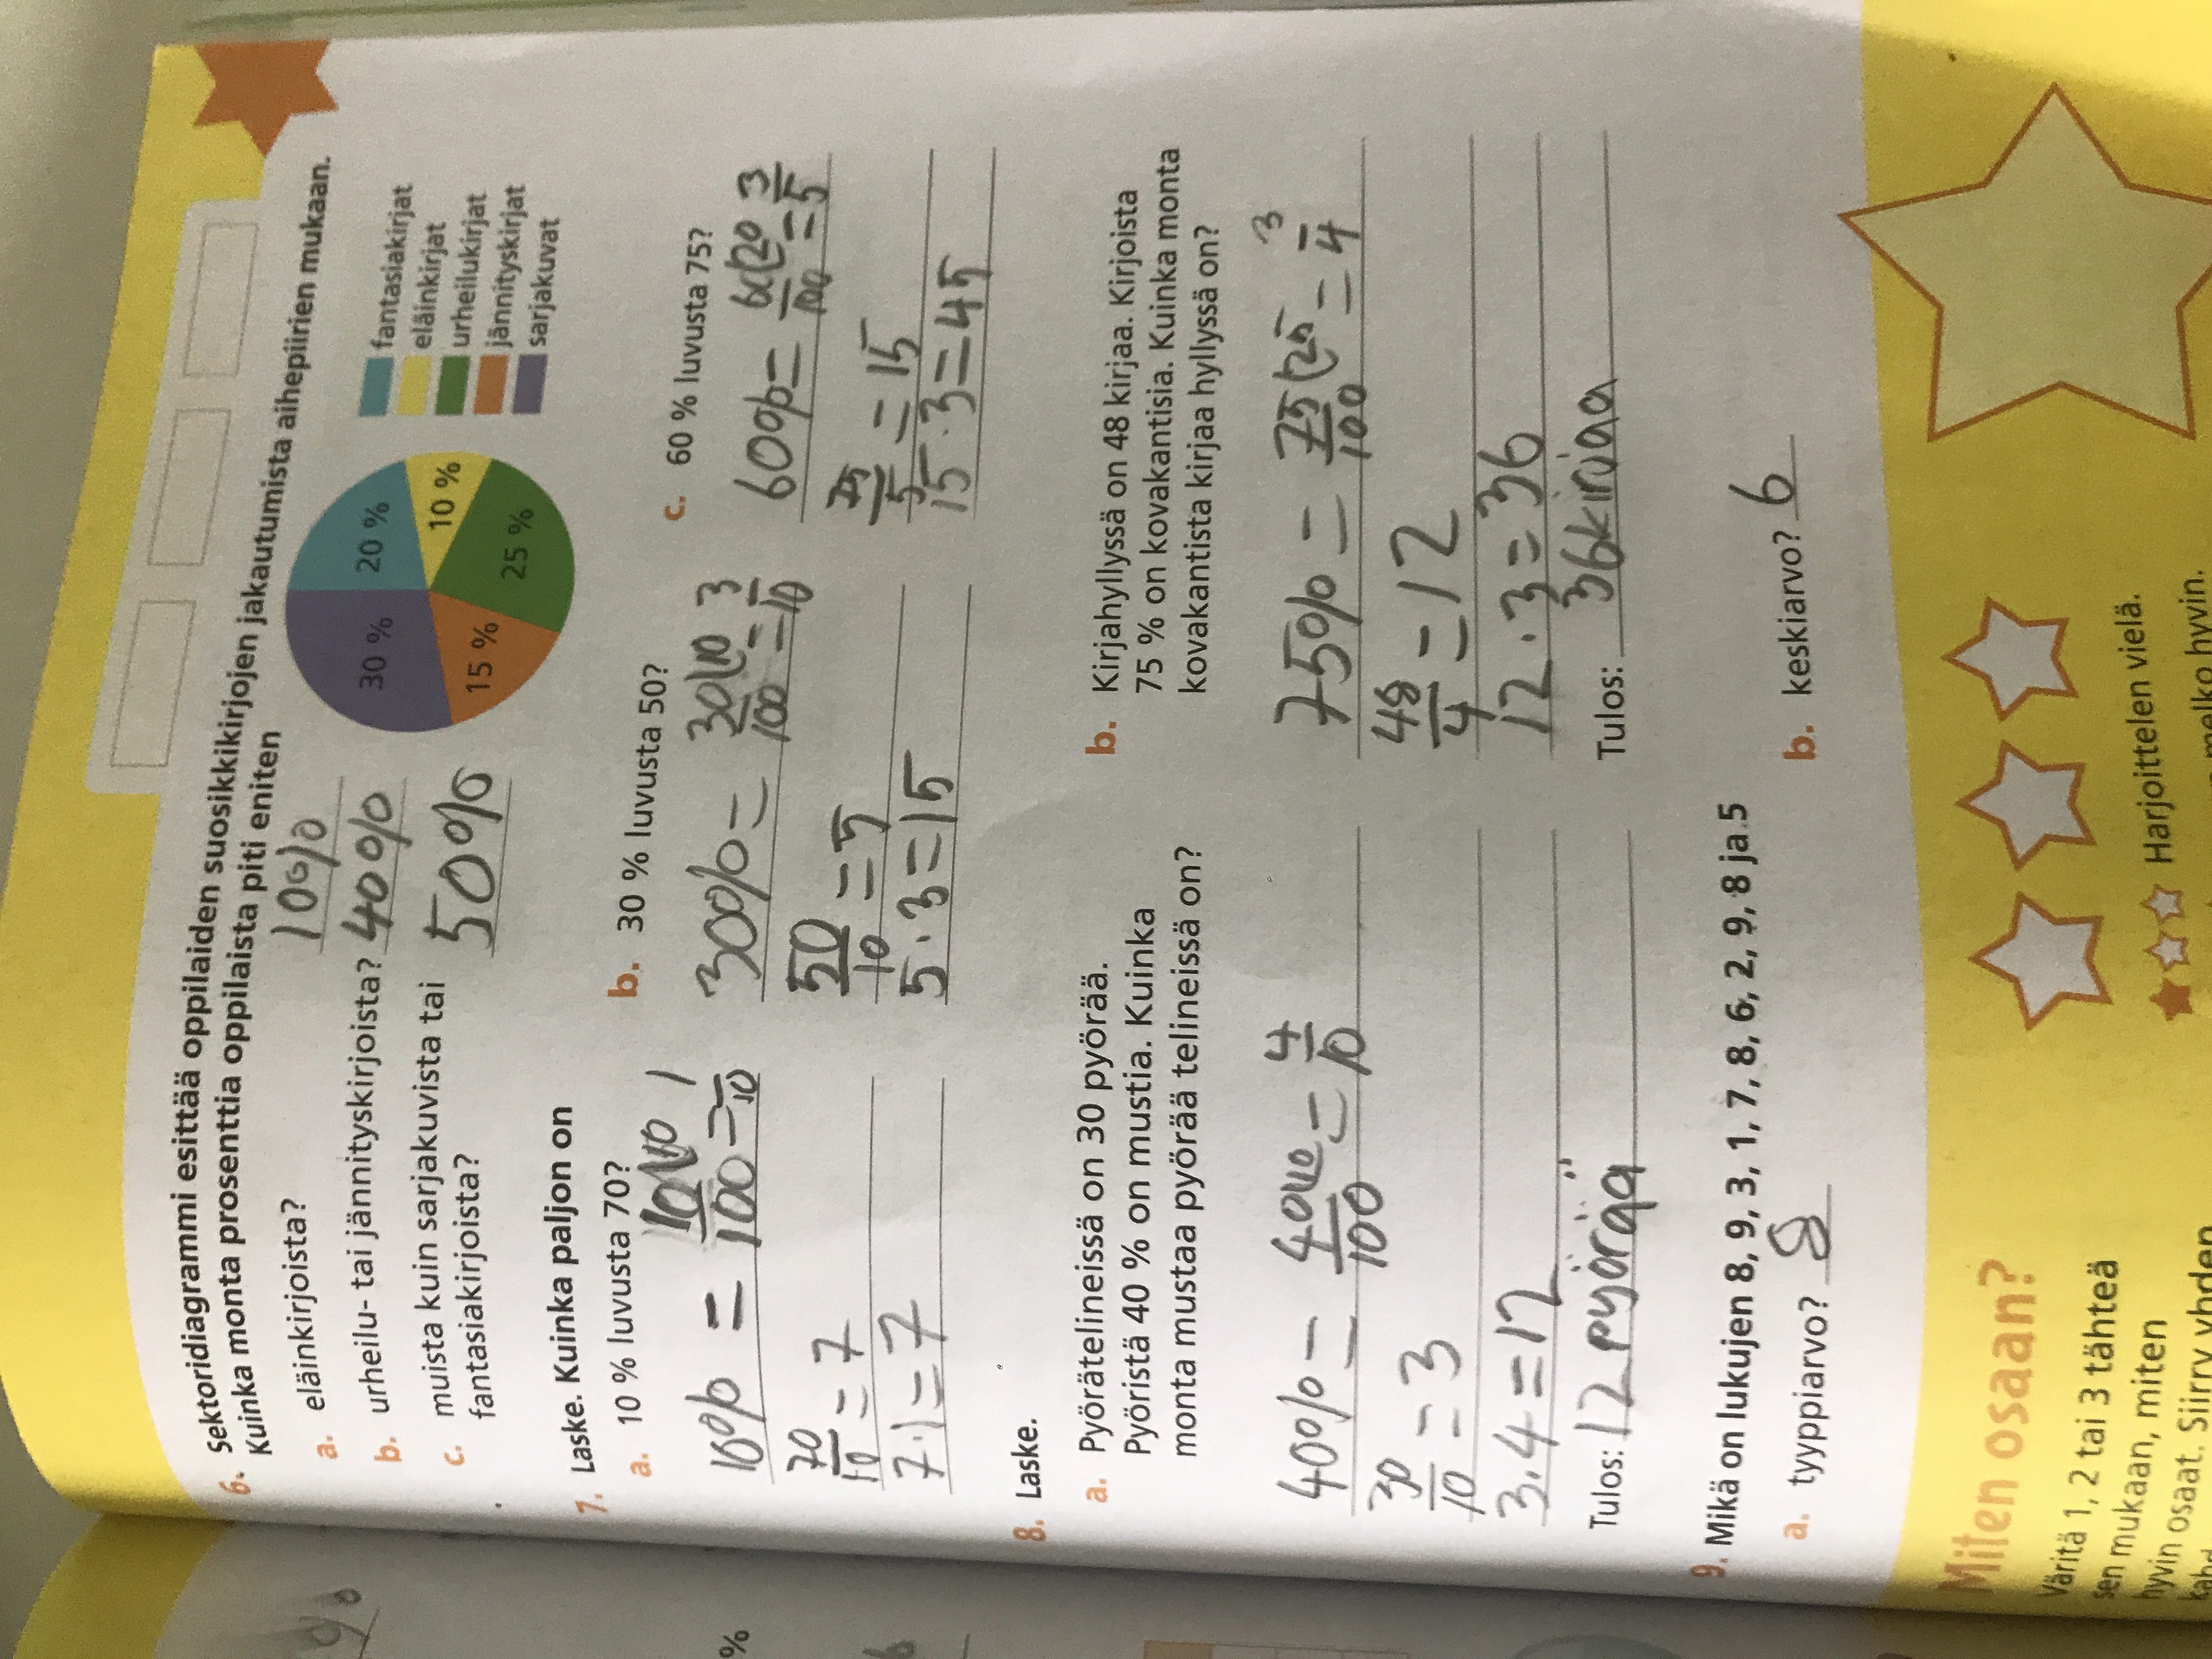 6. Sektoridiagrammi esittää oppilaiden suosikkikirjojen jakautumista aihepiirien mukaan.
Kuinka monta prosenttia oppilaista piti eniten
a. eläinkirjoista? 10%
b. urheilu- tai jännityskirjoista? 40%
c. muista kuin sarjakuvista tai
fantasiakirjoista? 50%
30 %
20 %
10 %
15 %
25 %
fantasiakirjat
eläinkirjat
urheilukirjat
jännityskirjat
sarjakuvat
7. Laske. Kuinka paljon on
a. 10 % luvusta 70?
10% = 10(10/100 = 1/10
70/10 = 7
7·1=7
b. 30 % luvusta 50?
30% = 30(10/100 = 3/10
50/10 = 5
5·3=15
c. 60 % luvusta 75?
60% = 60(20/100 = 3/5
75/5 = 15
15·3=45
8. Laske.
a. Pyörätelineissä on 30 pyörää.
Pyöristä 40 % on mustia. Kuinka
monta mustaa pyörää telineissä on?
40% = 40(10/100 = 4/10
30/10 = 3
3·4=12
Tulos: 12 pyörää
b. Kirjahyllyssä on 48 kirjaa. Kirjoista
75 % on kovakantisia. Kuinka monta
kovakantista kirjaa hyllyssä on?
75% = 75(25/100 = 3/4
48/4 = 12
12·3=36
Tulos: 36kirjaa
9. Mikä on lukujen 8, 9, 3, 1, 7, 8, 6, 2, 9, 8 ja 5
a. tyyppiarvo? 8
b. keskiarvo? 6
Miten osaan?
Väritä 1, 2 tai 3 tähteä
sen mukaan, miten
hyvin osaat. Siirry yhden
Harjoittelen vielä.
melko hyvin.
%